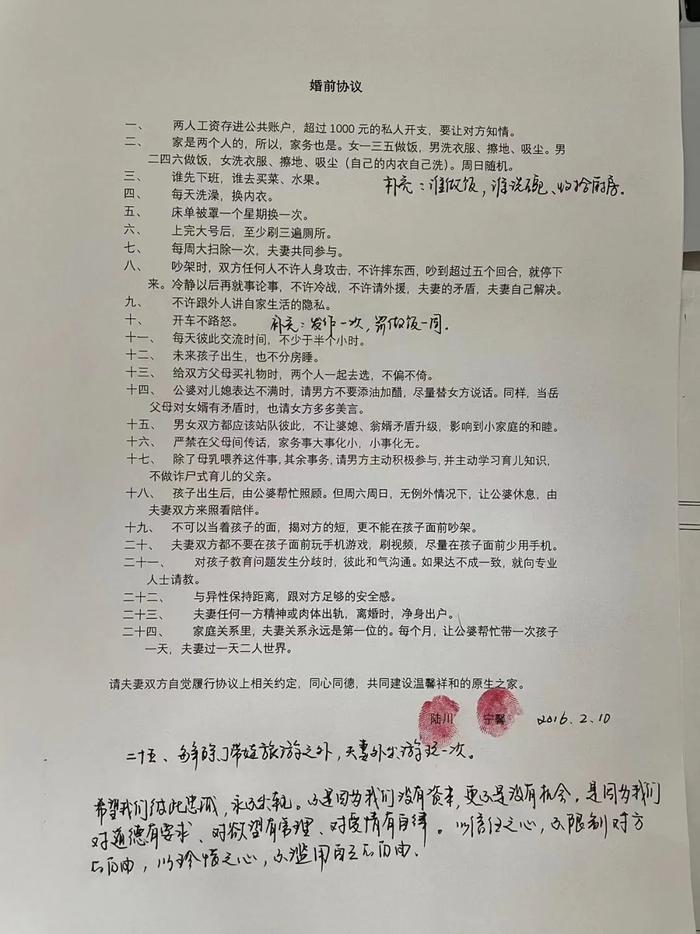 婚前协议
一、 两人工资存进公共账户，超过 1000 元的私人开支，要让对方知情。
二、 家是两个人的，所以，家务也是。女一三五做饭，男洗衣服、擦地、吸尘。男
二四六做饭，女洗衣服、擦地、吸尘（自己的内衣自己洗）。周日随机。
三、 谁先下班，谁去买菜、水果。
补充：谁做饭，谁洗碗、收拾厨房。
四、 每天洗澡，换内衣。
五、 床单被罩一个星期换一次。
六、 上完大号后，至少刷三遍厕所。
七、 每周大扫除一次，夫妻共同参与。
八、 吵架时，双方任何人不许人身攻击，不许摔东西，吵到超过五个回合，就停下
来。冷静以后再就事论事，不许冷战，不许请外援，夫妻的矛盾，夫妻自己解决。
九、 不许跟外人讲自家生活的隐私。
十、 开车不路怒。 补充：发作一次，罚做饭一周.
十一、 每天彼此交流时间，不少于半个小时。
十二、 未来孩子出生，也不分房睡。
十三、 给双方父母买礼物时，两个人一起去选，不偏不倚。
十四、 公婆对儿媳表达不满时，请男方不要添油加醋，尽量替女方说话。同样，当岳
父母对女婿有矛盾时，也请女方多多美言。
十五、 男女双方都应该站队彼此，不让婆媳、翁婿矛盾升级，影响到小家庭的和睦。
十六、 严禁在父母间传话，家务事大事化小，小事化无。
十七、 除了母乳喂养这件事，其余事务，请男方主动积极参与，并主动学习育儿知识，
不做诈尸式育儿的父亲。
十八、 孩子出生后，由公婆帮忙照顾。但周六周日，无例外情况下，让公婆休息，由
夫妻双方来照看陪伴。
十九、 不可以当着孩子的面，揭对方的短，更不能在孩子面前吵架。
二十、 夫妻双方都不要在孩子面前玩手机游戏，刷视频，尽量在孩子面前少用手机。
二十一、 对孩子教育问题发生分歧时，彼此和气沟通。如果达不成一致，就向专业
人士请教。
二十二、 与异性保持距离，跟对方足够的安全感。
二十三、 夫妻任何一方精神或肉体出轨，离婚时，净身出户。
二十四、 家庭关系里，夫妻关系永远是第一位的。每个月，让公婆帮忙带一次孩子
一天，夫妻过一天二人世界。
请夫妻双方自觉履行协议上相关约定，同心同德，共同建设温馨祥和的原生之家。
陆川 宁馨 2016.2.10
二十五、每年除了带娃旅游之外，夫妻外出游玩一次。
希望我们彼此忠诚，永不出轨。不是因为我们没有资本，更不是没有机会，是因为我们
对道德有要求、对欲望有管理、对爱情有自律。以信任之心，不限制对方
的自由，以珍惜之心，不滥用自己的自由.